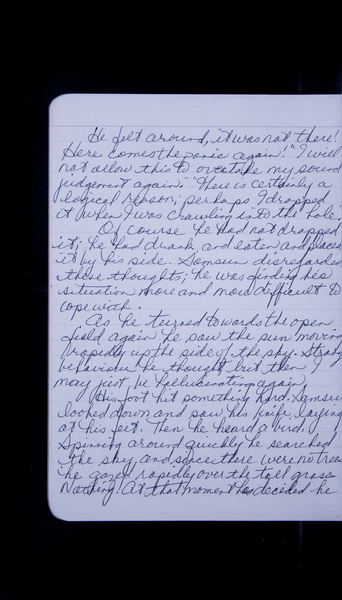 He felt around, it was not there!
Here comes the panic again! "I will
not allow this to overtake my sound
judgement again." "There is certainly a
logical reason; perhaps I dropped
it when I was crawling into the hole.
Of course he had not dropped
it; he had drank, and eaten and placed
it by his side. Samsun disregarded
these thoughts; he was finding his
situation more and more difficult to
cope with.
As he turned towards the open
field again he saw the sun moving
rapidly up the side of the sky. Strang
behaviour he thought but then I
may just be hallucinating again
His foot hit something hard. Samsun
looked down and saw his knife laying
at his feet. Then he heard a bird.
Spinning around quickly he searched
the sky, and since there were no trees
he gazed rapidly over the tall grass.
Nothing! At that moment he decided he